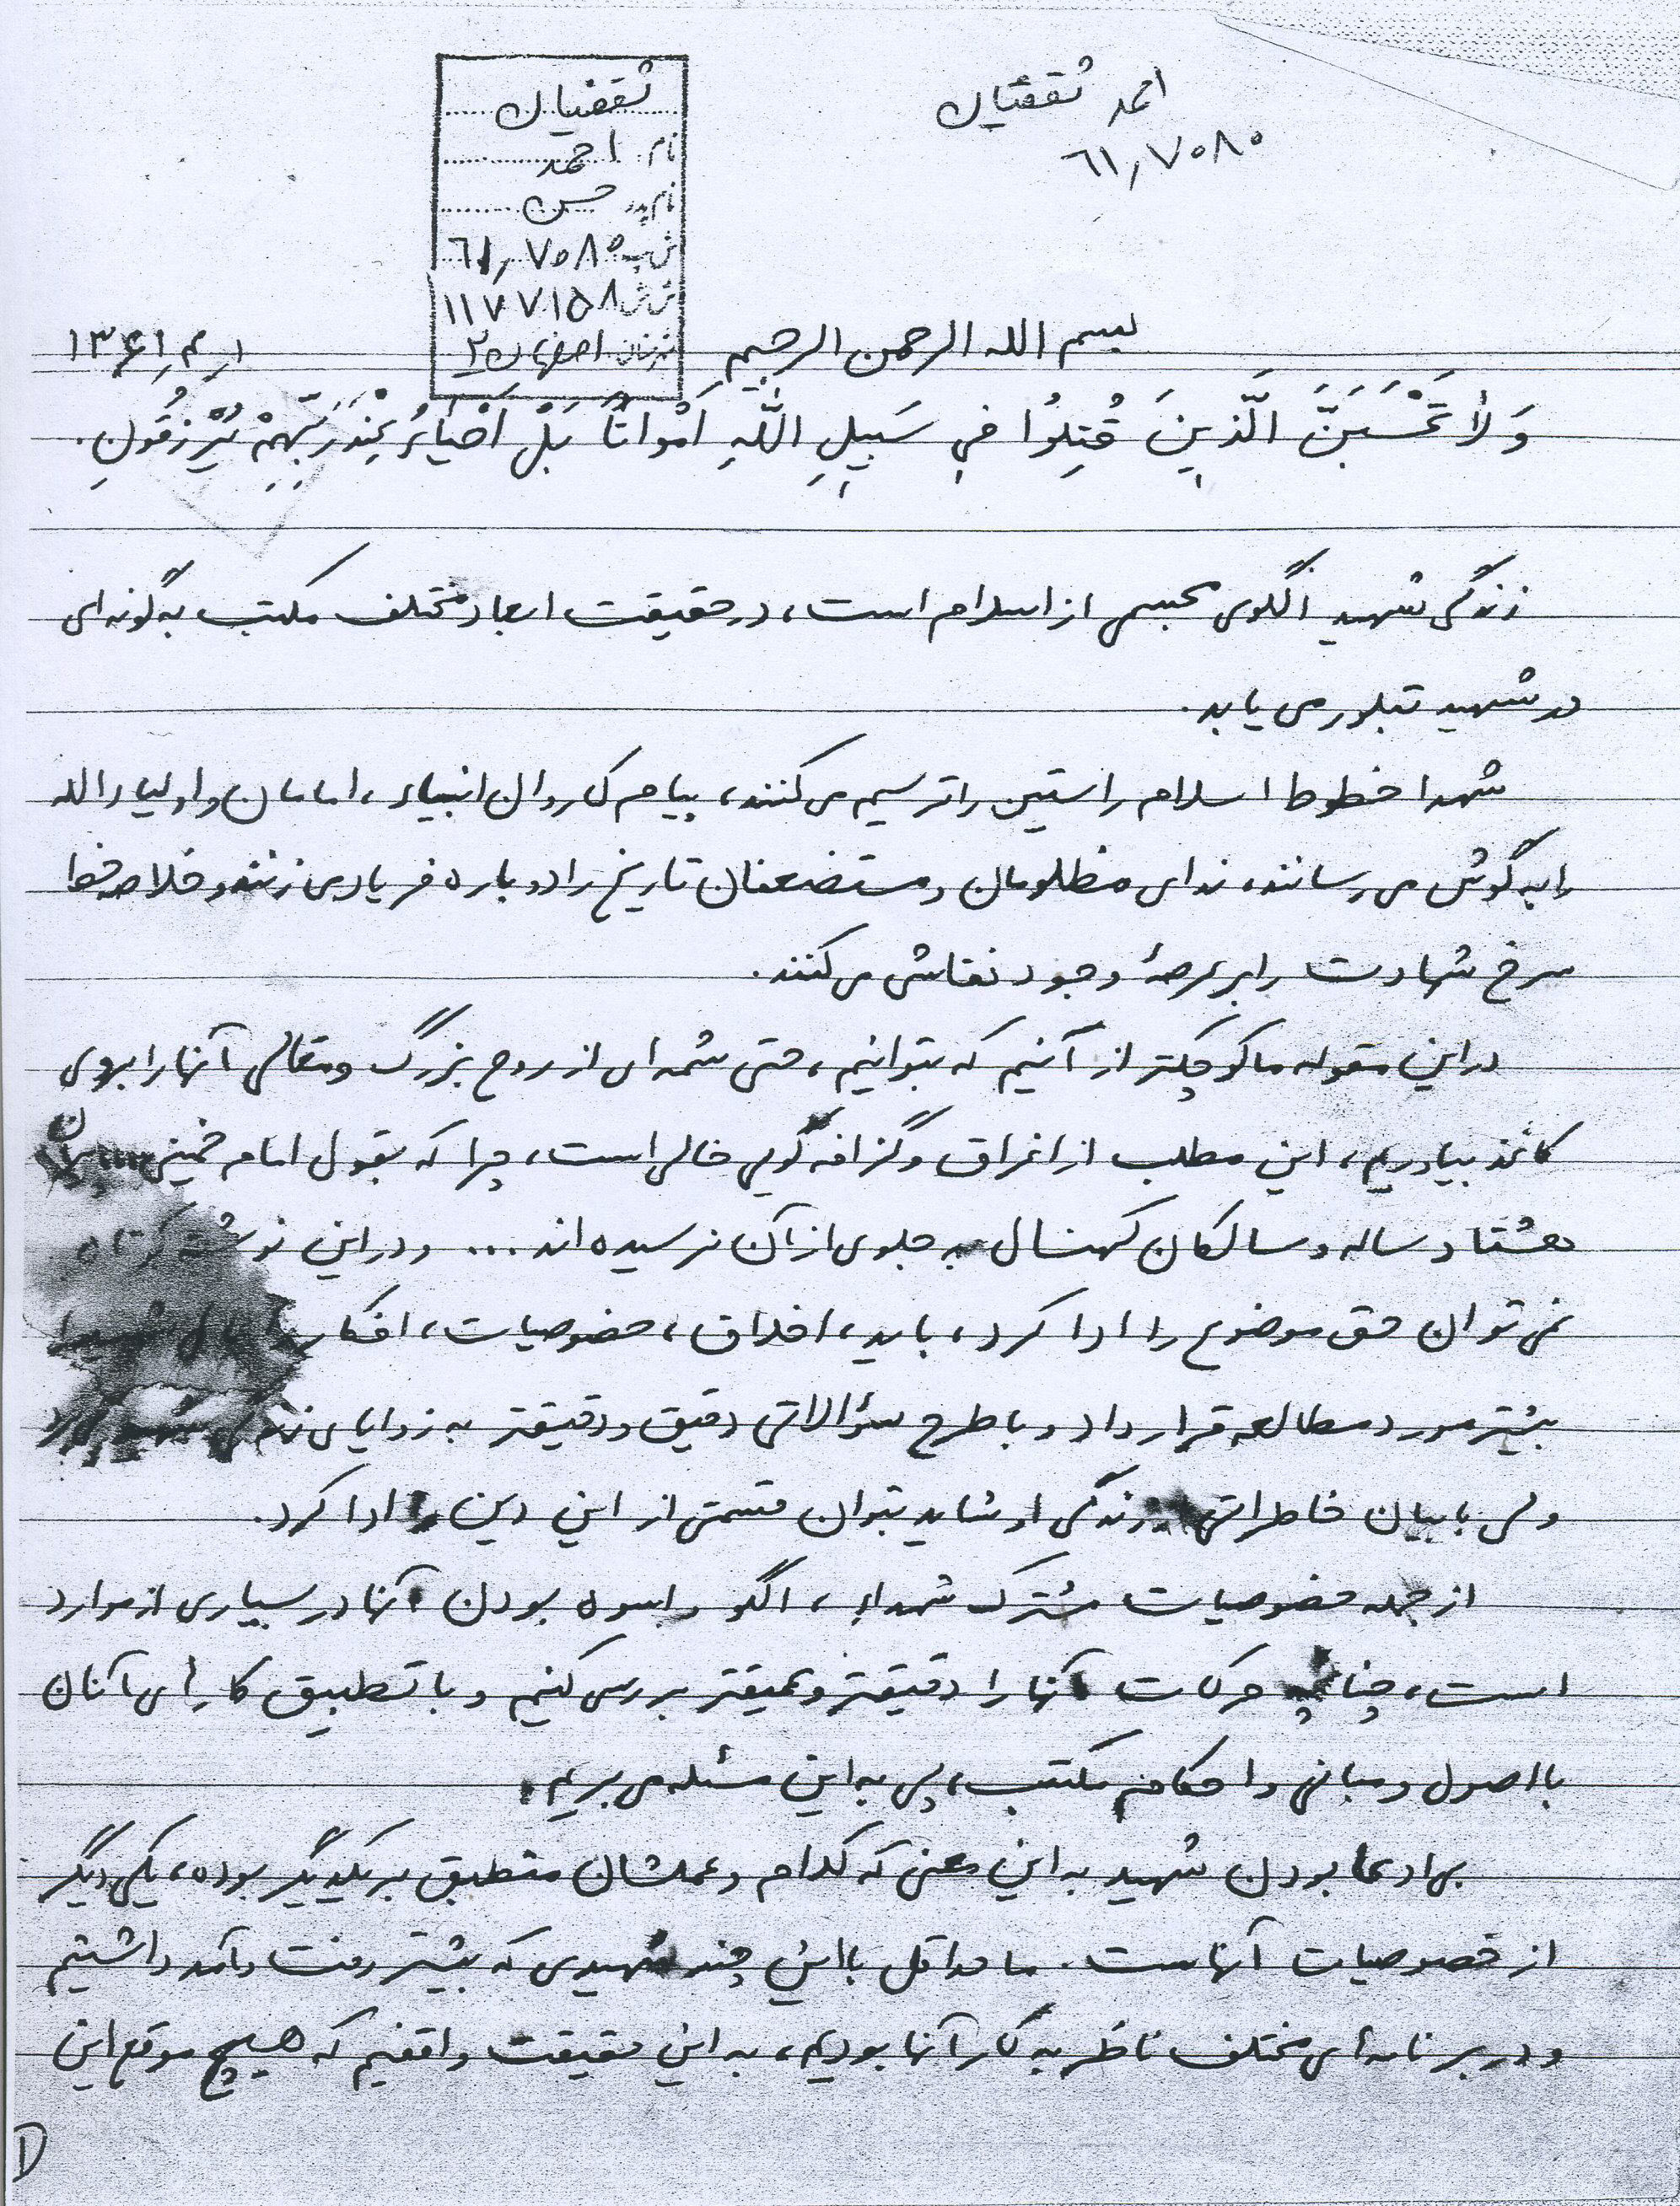 احمد ثقفیان
۶۱٫۷۵۸۰
ثقفیان
نام: احمد
نام پدر حسن
ش پ ۶۱٫۷۵۸۰
ش ش ۱۱۷۷۱۵۸
اصفهان ۲
بسم الله الرحمن الرحیم
۱٫۴٫۱۳۶۱
وَ لاٰ تَحْسَبَنَّ الَّذینَ قُتِلُوا فی سَبیلِ اللّٰهِ اَمْواتاً بَلْ اَحْیاءٌ عِنْدَ رَبِّهِمْ یُرْزَقُونِ.
زندگی شهید الگوی مجسمی از اسلام است، در حقیقت ابعاد مختلف مکتب به گونه‌ای
در شهید تبلور می یابد.
شهدا خطوط اسلام راستین را ترسیم می کنند، پیام کاروان انبیاء، امامان و اولیاء الله
را به گوش می رسانند، ندای مظلومان و مستضعفان تاریخ را دوباره فریاد می زنند و خلاصه خط
سرخ شهادت را بر عرصهٔ وجود نقاشی می کنند.
در این مقوله ما کوچکتر از آنیم که بتوانیم، حتی شمه‌ای از روح بزرگ و متعالی آنها را بروی
کاغذ بیاوریم، این مطلب از اغراق و گزافه گویی خالی است، چرا که بقول امام خمینی
هشتاد ساله و سالکان کهنسال به جلوی از آن نرسیده اند ... و در این نوشته کوتاه
نمی توان حق موضوع را ادا کرد، باید، اخلاق، خصوصیات، افکار
بیشتر مورد مطالعه قرار داد و با طرح سؤالاتی دقیق و دقیقتر به زوایای زندگی
ولی با بیان خاطراتی از زندگی او شاید بتوان قسمتی از این دین را ادا کرد.
از جمله خصوصیات مشترک شهداء، الگو و اسوه بودن آنها در بسیاری از موارد
است، چنانچه حرکات آنها را دقیقتر و عمیقتر بررسی کنیم و با تطبیق کارأی آنان
با اصول و مبانی و احکام مکتب، پی به این مسئله می بریم.
بهادعا بودن شهید به این معنی که کلام و عملشان منطبق بر یکدیگر بوده، یکی دیگر
از خصوصیات آنهاست. ما حداقل با این چند شهیدی که بیشتر رفت و آمد داشتیم
و در برنامه‌ای مختلف ناظر به کار آنها بودیم، به این حقیقت واقفیم که هیچ موقع این